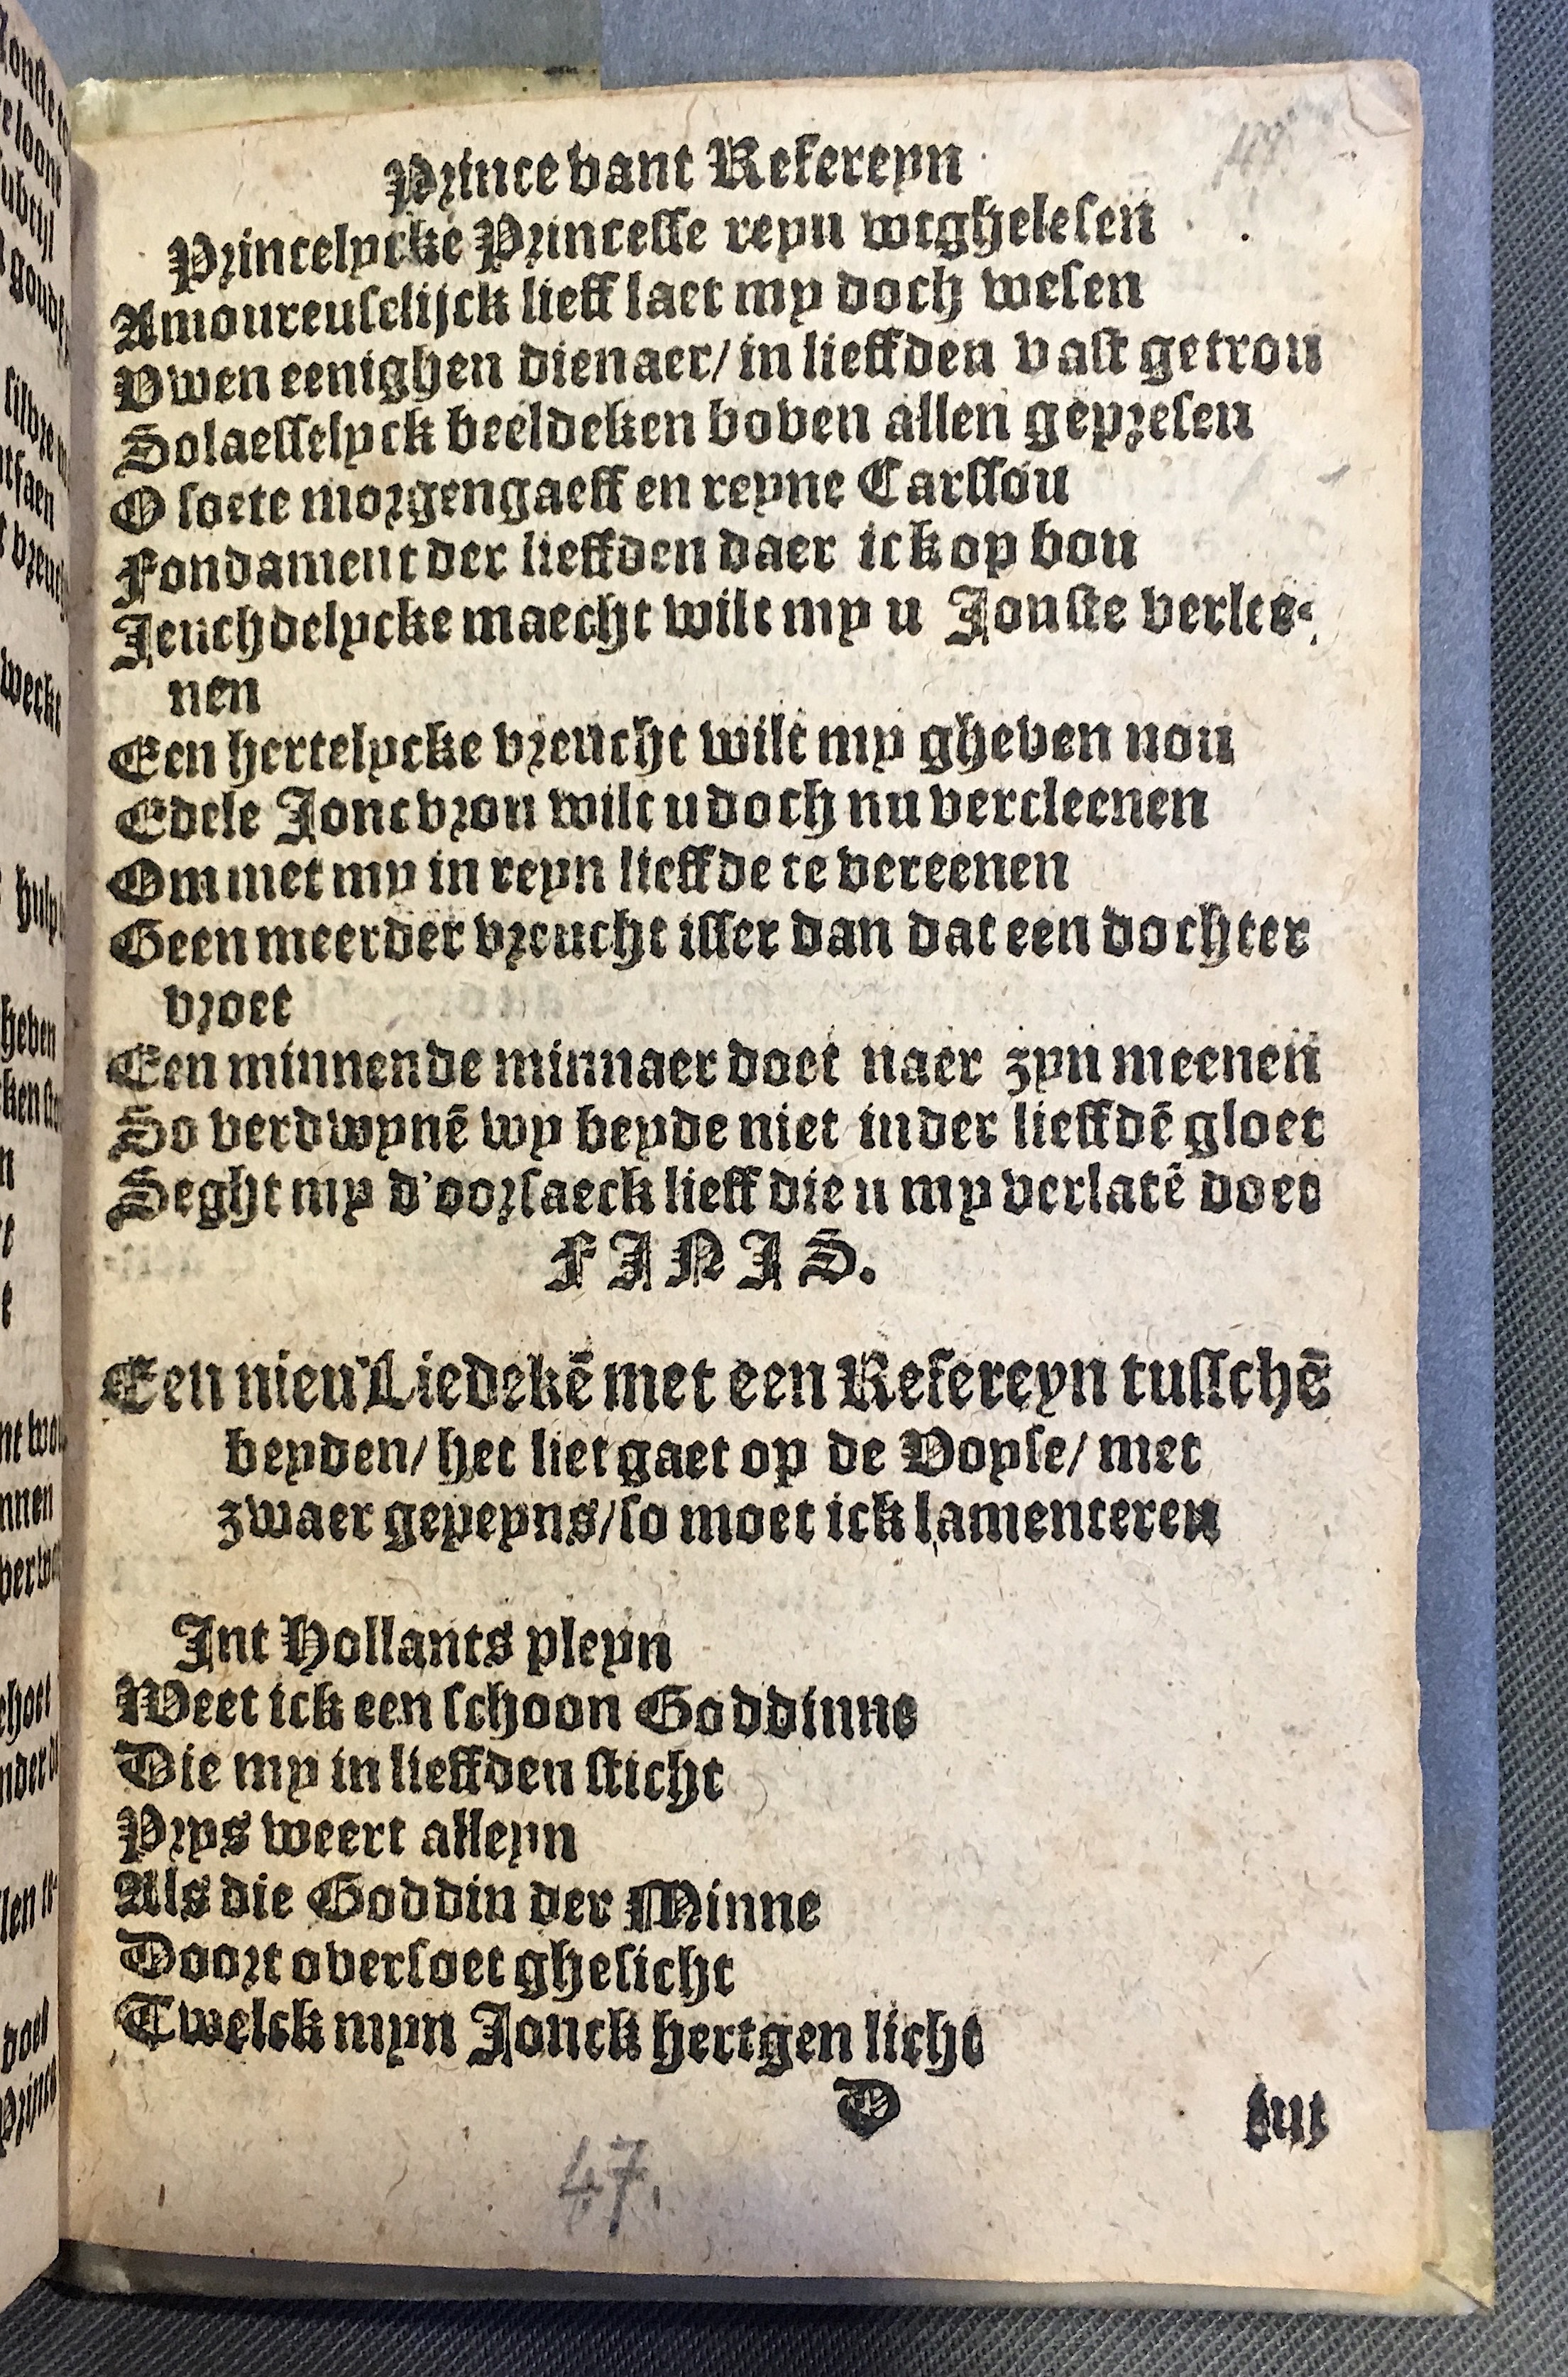 Prince vant Refereyn
Princelycke Princesse reyn wtghelesen
Amoureuselijck lieff laet my doch wesen
Vwen eenighen dienaer/ in lieffden vast getrou
Solaesselyck beeldeken boven allen gepresen
O soete morgengaeff en reyne Carssou
Fondament der lieffden daer ick op bou
Jeuchdelycke maecht wilt my u Jonste verlee-
nen
Een hertelycke vreucht wilt my gheven nou
Edele Joncvrou wilt u doch nu vercleenen
Om met my in reyn lieffde te vereenen
Geen meerder vreucht isser dan dat een dochter
vroet
Een minnende minnaer doet naer zyn meenen
So verdwynē wy beyde niet inder lieffdē gloet
Seght my d'oorsaeck lieff die u my verlatē doet
FINIS.
Een nieu Liedekē met een Refereyn tusschē
beyden/ het liet gaet op de Voyse/ met
zwaer gepeyns/ so moet ick lamenteren
Int Hollants pleyn
Weet ick een schoon Goddinne
Die my in lieffden sticht
Prys weert alleyn
Als die Goddin der Minne
Doort oversoet ghesicht
Twelck myn Jonck hertgen licht
D tut
47.